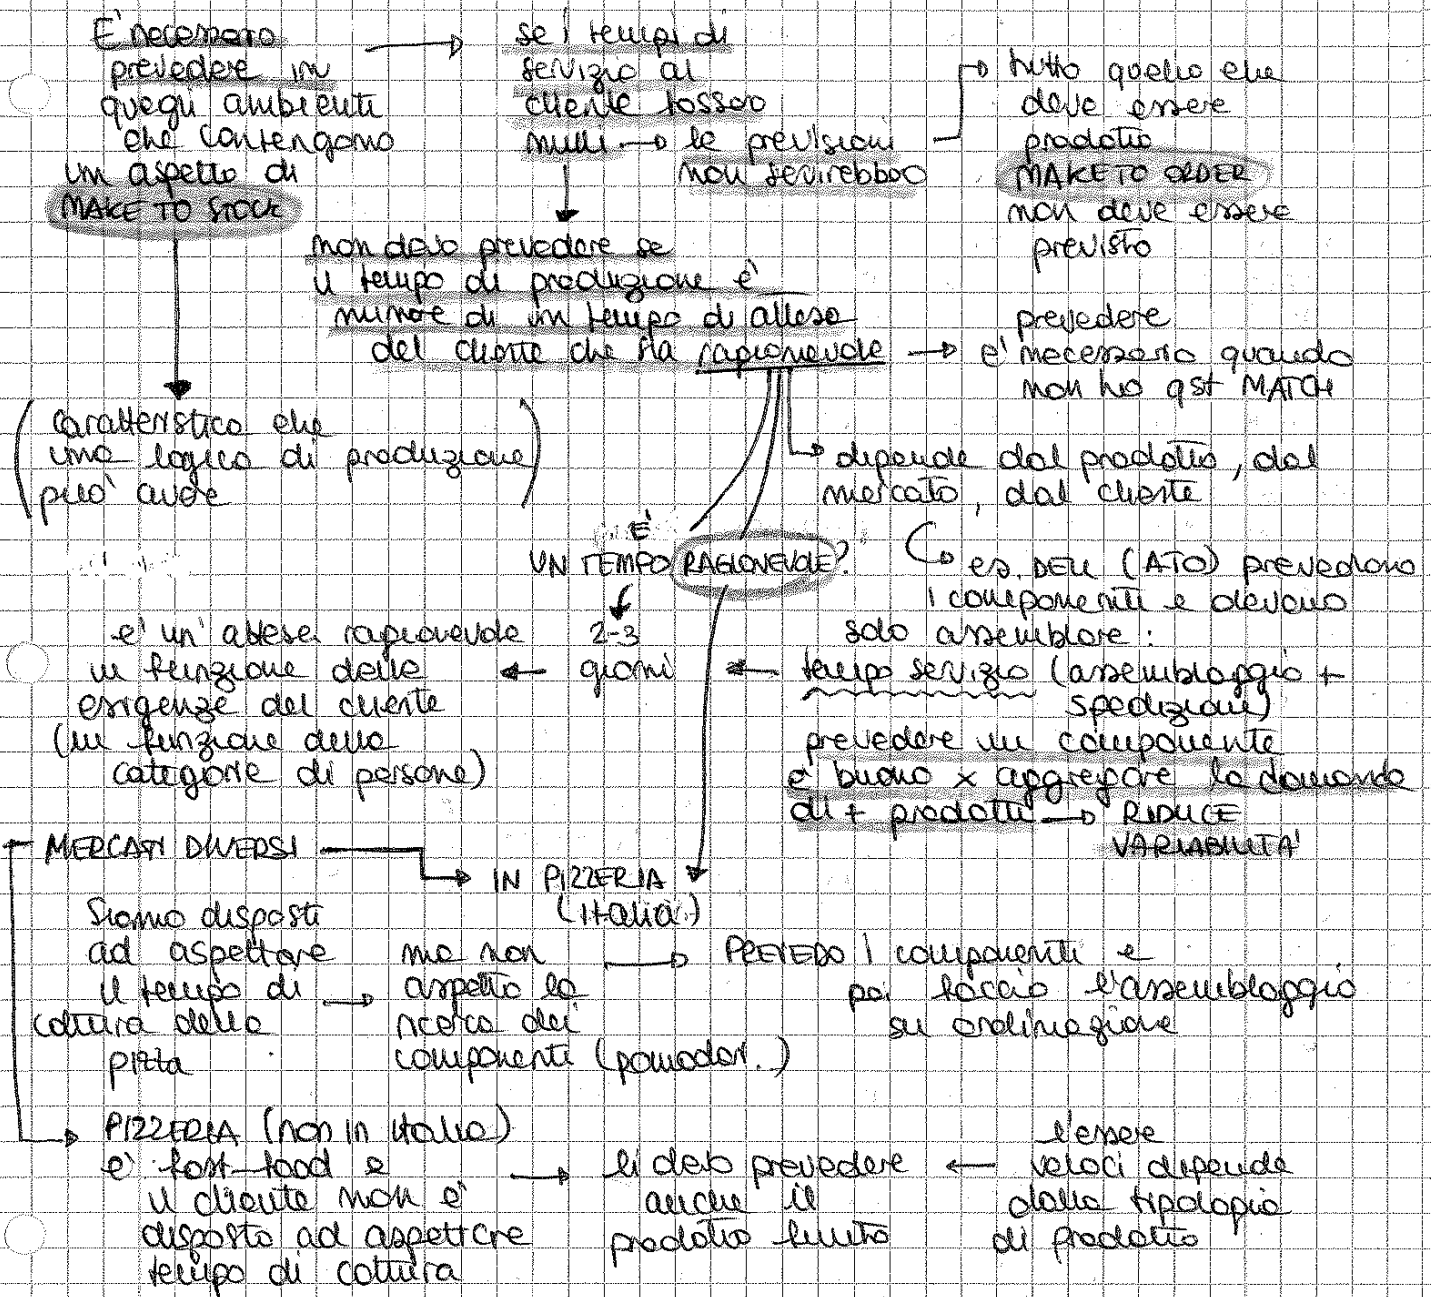 E' necessario
prevedere in
quegli ambienti
che contengono
un aspetto di
MAKE TO STOCK
se i tempi di
servizio al
cliente fossero
nulli → le previsioni
non servirebbero
tutto quello che
deve essere
prodotto
MAKE TO ORDER
non deve essere
previsto
non devo prevedere se
il tempo di produzione è
minore di un tempo di attesa
del cliente che sia ragionevole →
prevedere
è necessario quando
non ho qst MATCH
(caratteristica che
una logica di produzione
può avere)
dipende dal prodotto, dal
mercato, dal cliente
E'
UN TEMPO RAGIONEVOLE?
es. DELL (ATO) prevedono
i componenti e devono
solo assemblare:
tempo servizio (assemblaggio +
spedizione)
2-3
giorni
è un'attesa ragionevole
in funzione delle
esigenze del cliente
(in funzione della
categoria di persone)
prevedere un componente
è buono x aggregare la domanda
di + prodotti → RIDUCE
VARIABILITA'
MERCATI DIVERSI
IN PIZZERIA
(italia)
siamo disposti
ad aspettare
il tempo di
cottura della
pizza
ma non
aspetto la
ricerca dei
componenti (pomodori..)
PREVEDO i componenti e
poi faccio l'assemblaggio
su ordinazione
PIZZERIA (non in italia)
è fast-food e
il cliente non è
disposto ad aspettare
tempo di cottura
lì devo prevedere
anche il
prodotto finito
l'essere
veloci dipende
dalla tipologia
di prodotto